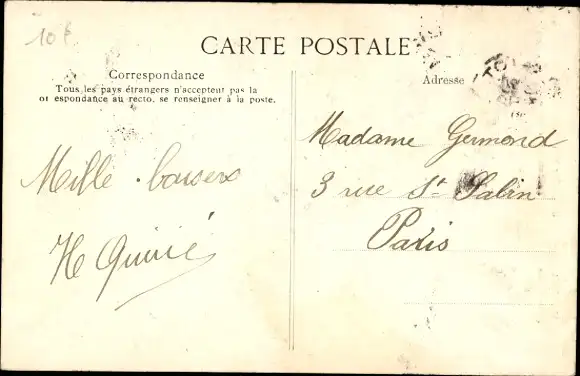 10 f
CARTE POSTALE
Correspondance
Tous les pays étrangers n'acceptent pas la
orespondance au recto, se renseigner à la poste.
Adresse
Mille baisers
Madame Germond
3 rue St Sabin
Paris